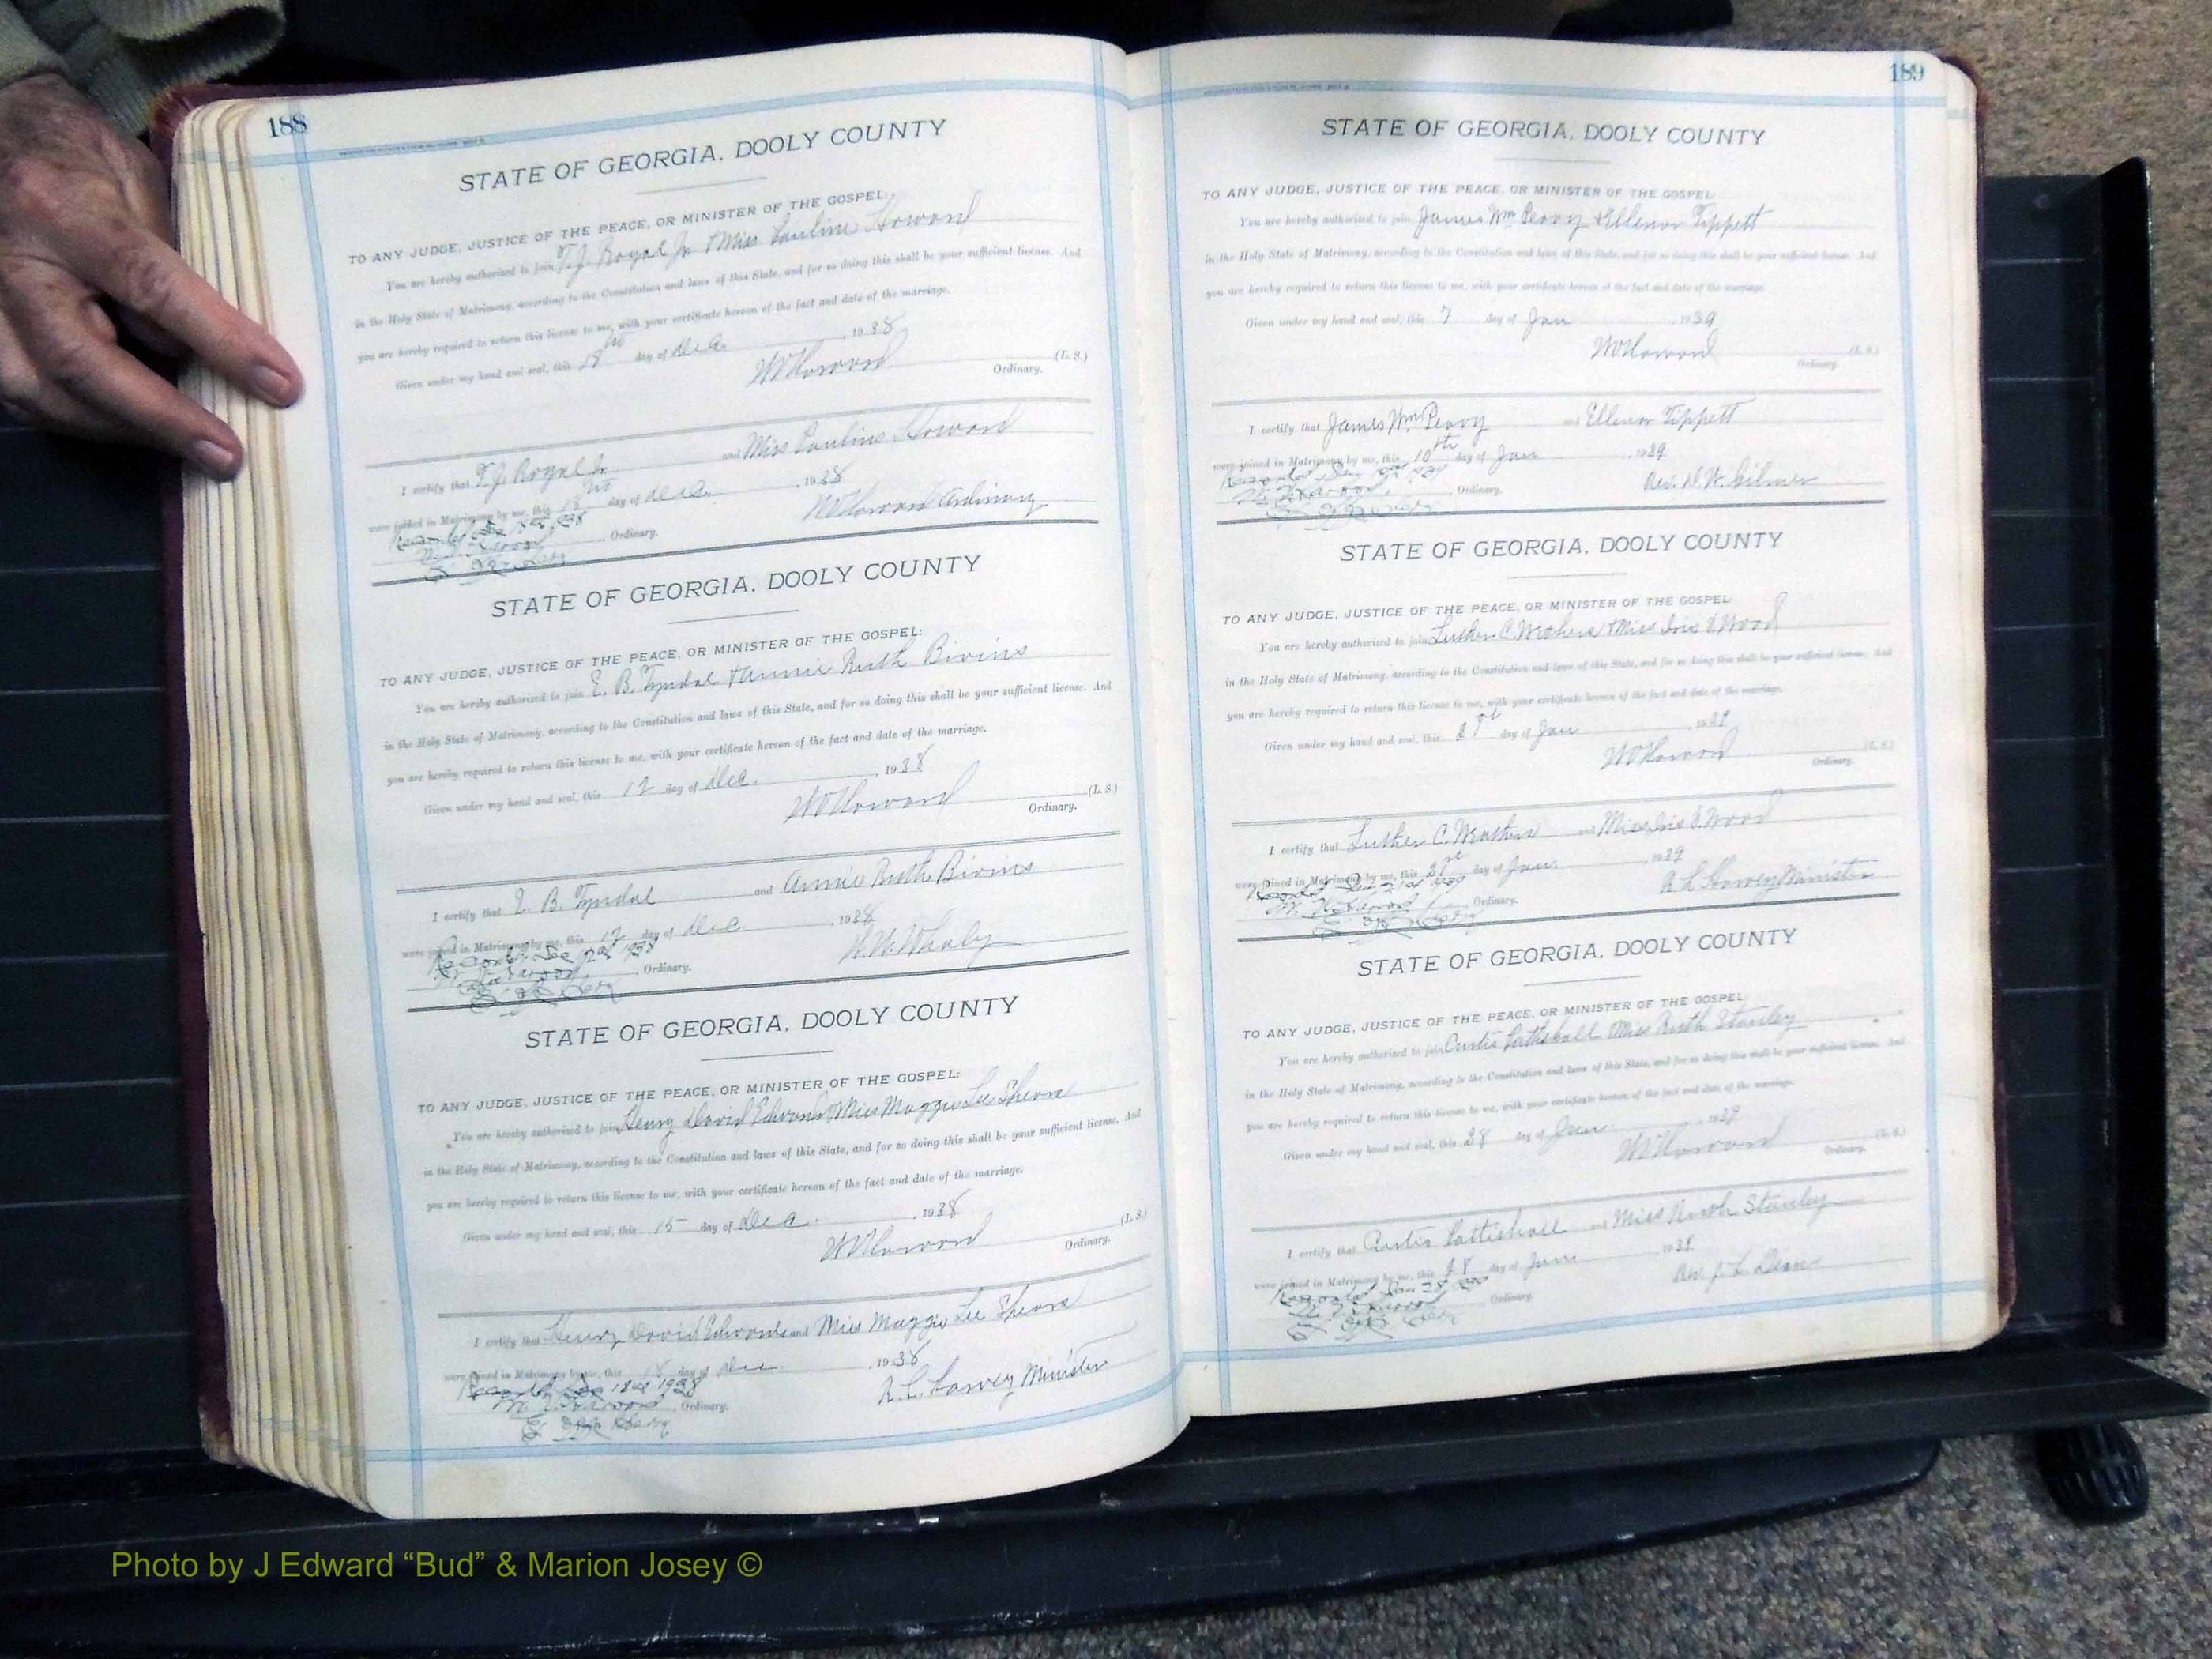 188
STATE OF GEORGIA, DOOLY COUNTY
TO ANY JUDGE, JUSTICE OF THE PEACE, OR MINISTER OF THE GOSPEL:
You are hereby authorized to join T.J. Royal Jr & Miss Pauline Howard
in the Holy State of Matrimony, according to the Constitution and laws of this State, and for so doing this shall be your sufficient license. And
you are hereby required to return this license to me, with your certificate hereon of the fact and date of the marriage.
Given under my hand and seal, this 18 day of Dec. , 1938
W Howard (L. S.)
Ordinary.
I certify that T.J. Royal Jr and Miss Pauline Howard
were joined in Matrimony by me, this 18 day of Dec. , 1938
Howard Ordinary
Ordinary.
STATE OF GEORGIA, DOOLY COUNTY
TO ANY JUDGE, JUSTICE OF THE PEACE, OR MINISTER OF THE GOSPEL:
You are hereby authorized to join E. B. Tyndal & Annie Ruth Bivins
in the Holy State of Matrimony, according to the Constitution and laws of this State, and for so doing this shall be your sufficient license. And
you are hereby required to return this license to me, with your certificate hereon of the fact and date of the marriage.
Given under my hand and seal, this 12 day of Dec. , 1938
Howard (L. S.)
Ordinary.
I certify that E. B. Tyndal and Annie Ruth Bivins
were joined in Matrimony by me, this 12 day of Dec. , 1938
Whaley
Ordinary.
STATE OF GEORGIA, DOOLY COUNTY
TO ANY JUDGE, JUSTICE OF THE PEACE, OR MINISTER OF THE GOSPEL:
You are hereby authorized to join Henry David Edwards & Miss Maggie Lee
in the Holy State of Matrimony, according to the Constitution and laws of this State, and for so doing this shall be your sufficient license. And
you are hereby required to return this license to me, with your certificate hereon of the fact and date of the marriage.
Given under my hand and seal, this 15 day of Dec. , 1938
Howard (L. S.)
Ordinary.
I certify that Henry David Edwards and Miss Maggie Lee
were joined in Matrimony by me, this 18 day of Dec. , 1938
R. L. Harvey Minister
Ordinary.
189
STATE OF GEORGIA, DOOLY COUNTY
TO ANY JUDGE, JUSTICE OF THE PEACE, OR MINISTER OF THE GOSPEL:
You are hereby authorized to join James Wm Peavy & Ellenor Tippett
in the Holy State of Matrimony, according to the Constitution and laws of this State, and for so doing this shall be your sufficient license. And
you are hereby required to return this license to me, with your certificate hereon of the fact and date of the marriage.
Given under my hand and seal, this 7 day of Jan , 1939
Howard (L. S.)
Ordinary.
I certify that James Wm Peavy and Ellenor Tippett
were joined in Matrimony by me, this 10th day of Jan , 1939
Rev. Gilmer
Ordinary.
STATE OF GEORGIA, DOOLY COUNTY
TO ANY JUDGE, JUSTICE OF THE PEACE, OR MINISTER OF THE GOSPEL:
You are hereby authorized to join Luther C. & Miss Iris Wood
in the Holy State of Matrimony, according to the Constitution and laws of this State, and for so doing this shall be your sufficient license. And
you are hereby required to return this license to me, with your certificate hereon of the fact and date of the marriage.
Given under my hand and seal, this 21st day of Jan , 1939
Howard (L. S.)
Ordinary.
I certify that Luther C. and Miss Iris Wood
were joined in Matrimony by me, this 21st day of Jan. , 1939
R L Harvey Minister
Ordinary.
STATE OF GEORGIA, DOOLY COUNTY
TO ANY JUDGE, JUSTICE OF THE PEACE, OR MINISTER OF THE GOSPEL:
You are hereby authorized to join Curtis Pattishall & Miss Ruth Stanley
in the Holy State of Matrimony, according to the Constitution and laws of this State, and for so doing this shall be your sufficient license. And
you are hereby required to return this license to me, with your certificate hereon of the fact and date of the marriage.
Given under my hand and seal, this 28 day of Jan. , 1939
Howard (L. S.)
Ordinary.
I certify that Curtis Pattishall and Miss Ruth Stanley
were joined in Matrimony by me, this 28 day of Jan
Rev. J. L.
Ordinary.
Photo by J Edward “Bud” & Marion Josey ©